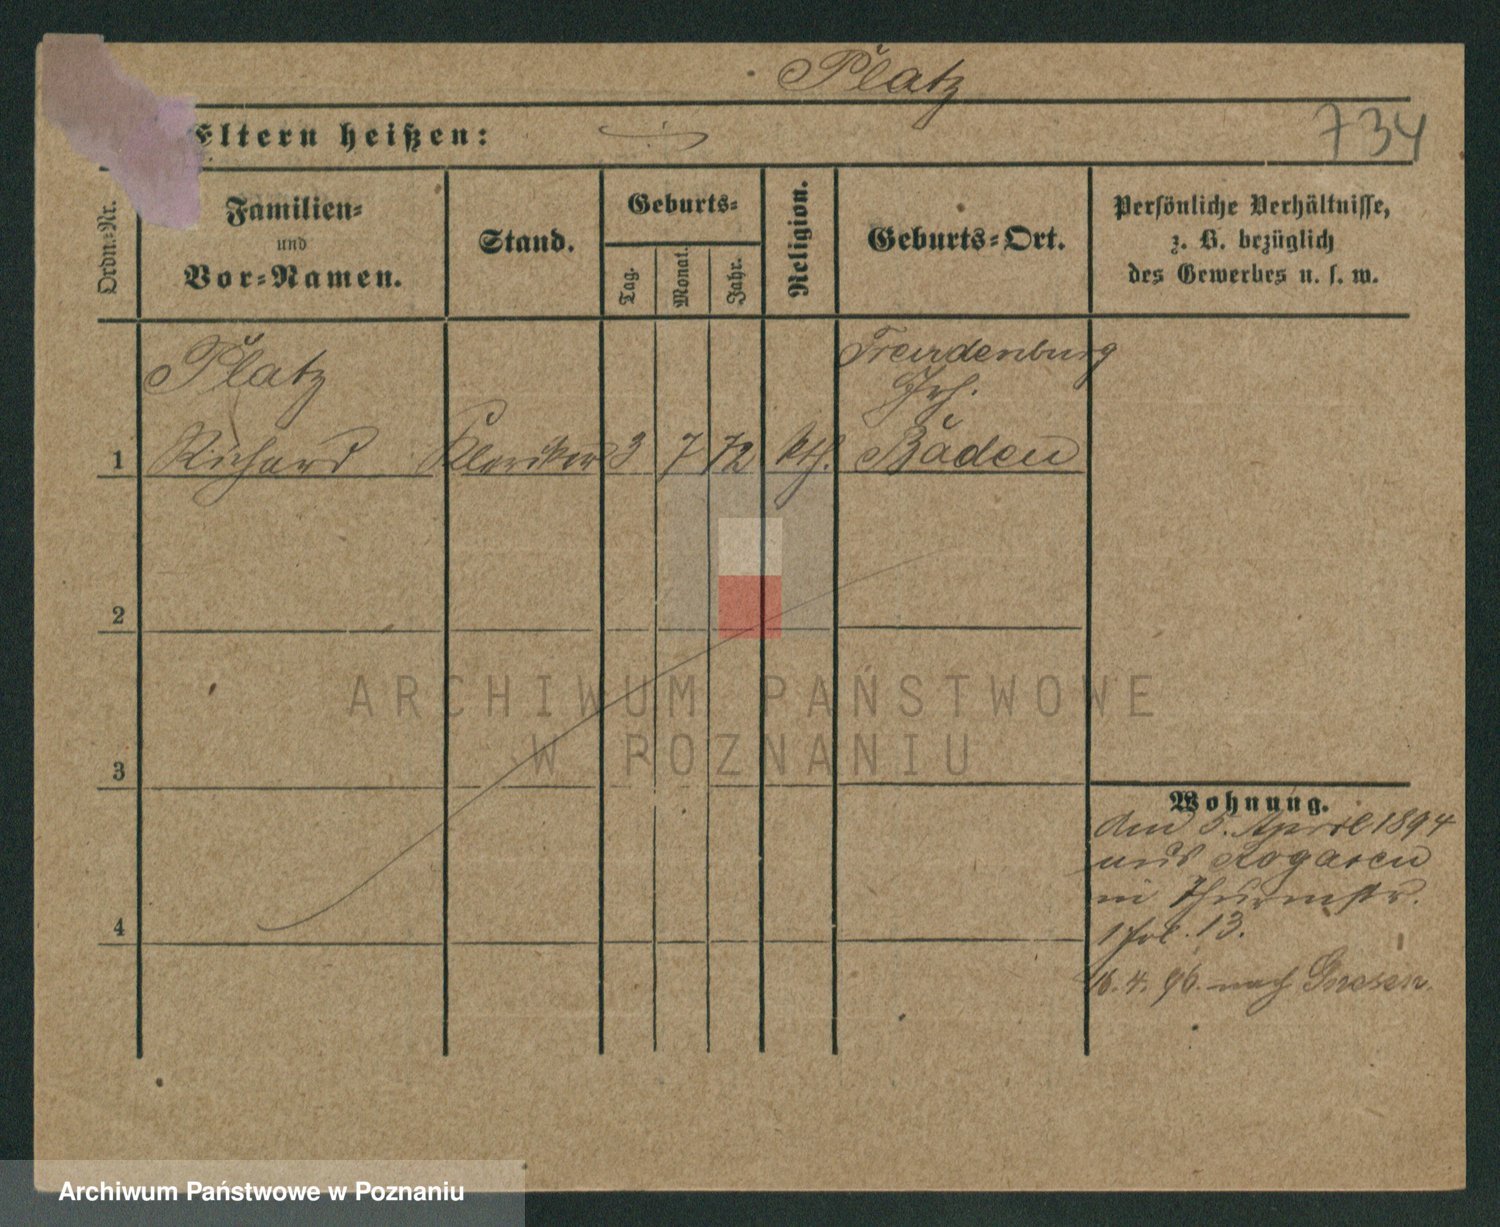 Platz
Eltern heißen:
734
Ordn.-Nr.
Familien-
und
Vor-Namen.
Stand.
Geburts-
Tag.
Monat.
Jahr.
Religion.
Geburts-Ort.
Persönliche Verhältnisse,
z. B. bezüglich
des Gewerbes u. s. w.
Platz
Freudenburg
1 Richard Kleriker 3 7 72 kth. Baden
2
ARCHIWUM PAŃSTWOWE
W POZNANIU
3
Wohnung.
den 5. April 1894
aus Rogasen
in Thurmstr.
13.
16. 4. 96. nach Gnesen.
4
Archiwum Państwowe w Poznaniu